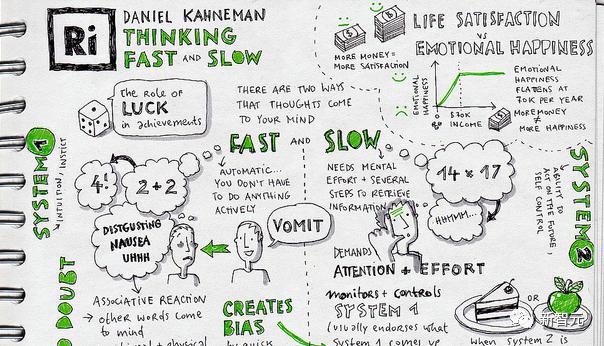 Ri
DANIEL KAHNEMAN
THINKING
FAST AND SLOW
The role of
LUCK
in achievements
THERE ARE TWO WAYS
THAT THOUGHTS COME
TO YOUR MIND
LIFE SATISFACTION
VS
EMOTIONAL HAPPINESS
MORE MONEY =
MORE SATISFACTION
EMOTIONAL
HAPPINESS
$70K
INCOME
EMOTIONAL
HAPPINESS
FLATTENS AT
70K PER YEAR
MORE MONEY
≠
MORE HAPPINESS
FAST AND SLOW
SYSTEM 1
INTUITION, INSTICT
4!
2+2
AUTOMATIC...
YOU DON'T HAVE
TO DO ANYTHING
ACTIVELY
DISTGUSTING
NAUSEA
UHHH
VOMIT
ASSOCIATIVE REACTION
→ other words come
to mind
CREATES
BIAS
by quick
DOUBT
NEEDS MENTAL
EFFORT + SEVERAL
STEPS TO RETRIEVE
INFORMATION
14 × 17
HHMMM...
DEMANDS
ATTENTION + EFFORT
monitors + controls
SYSTEM 1
(usually endorses what
System 1 comes up
SYSTEM 2
ABILITY TO
ACT ON THE FUTURE,
SELF CONTROL
OR
When system 2 is
新智元